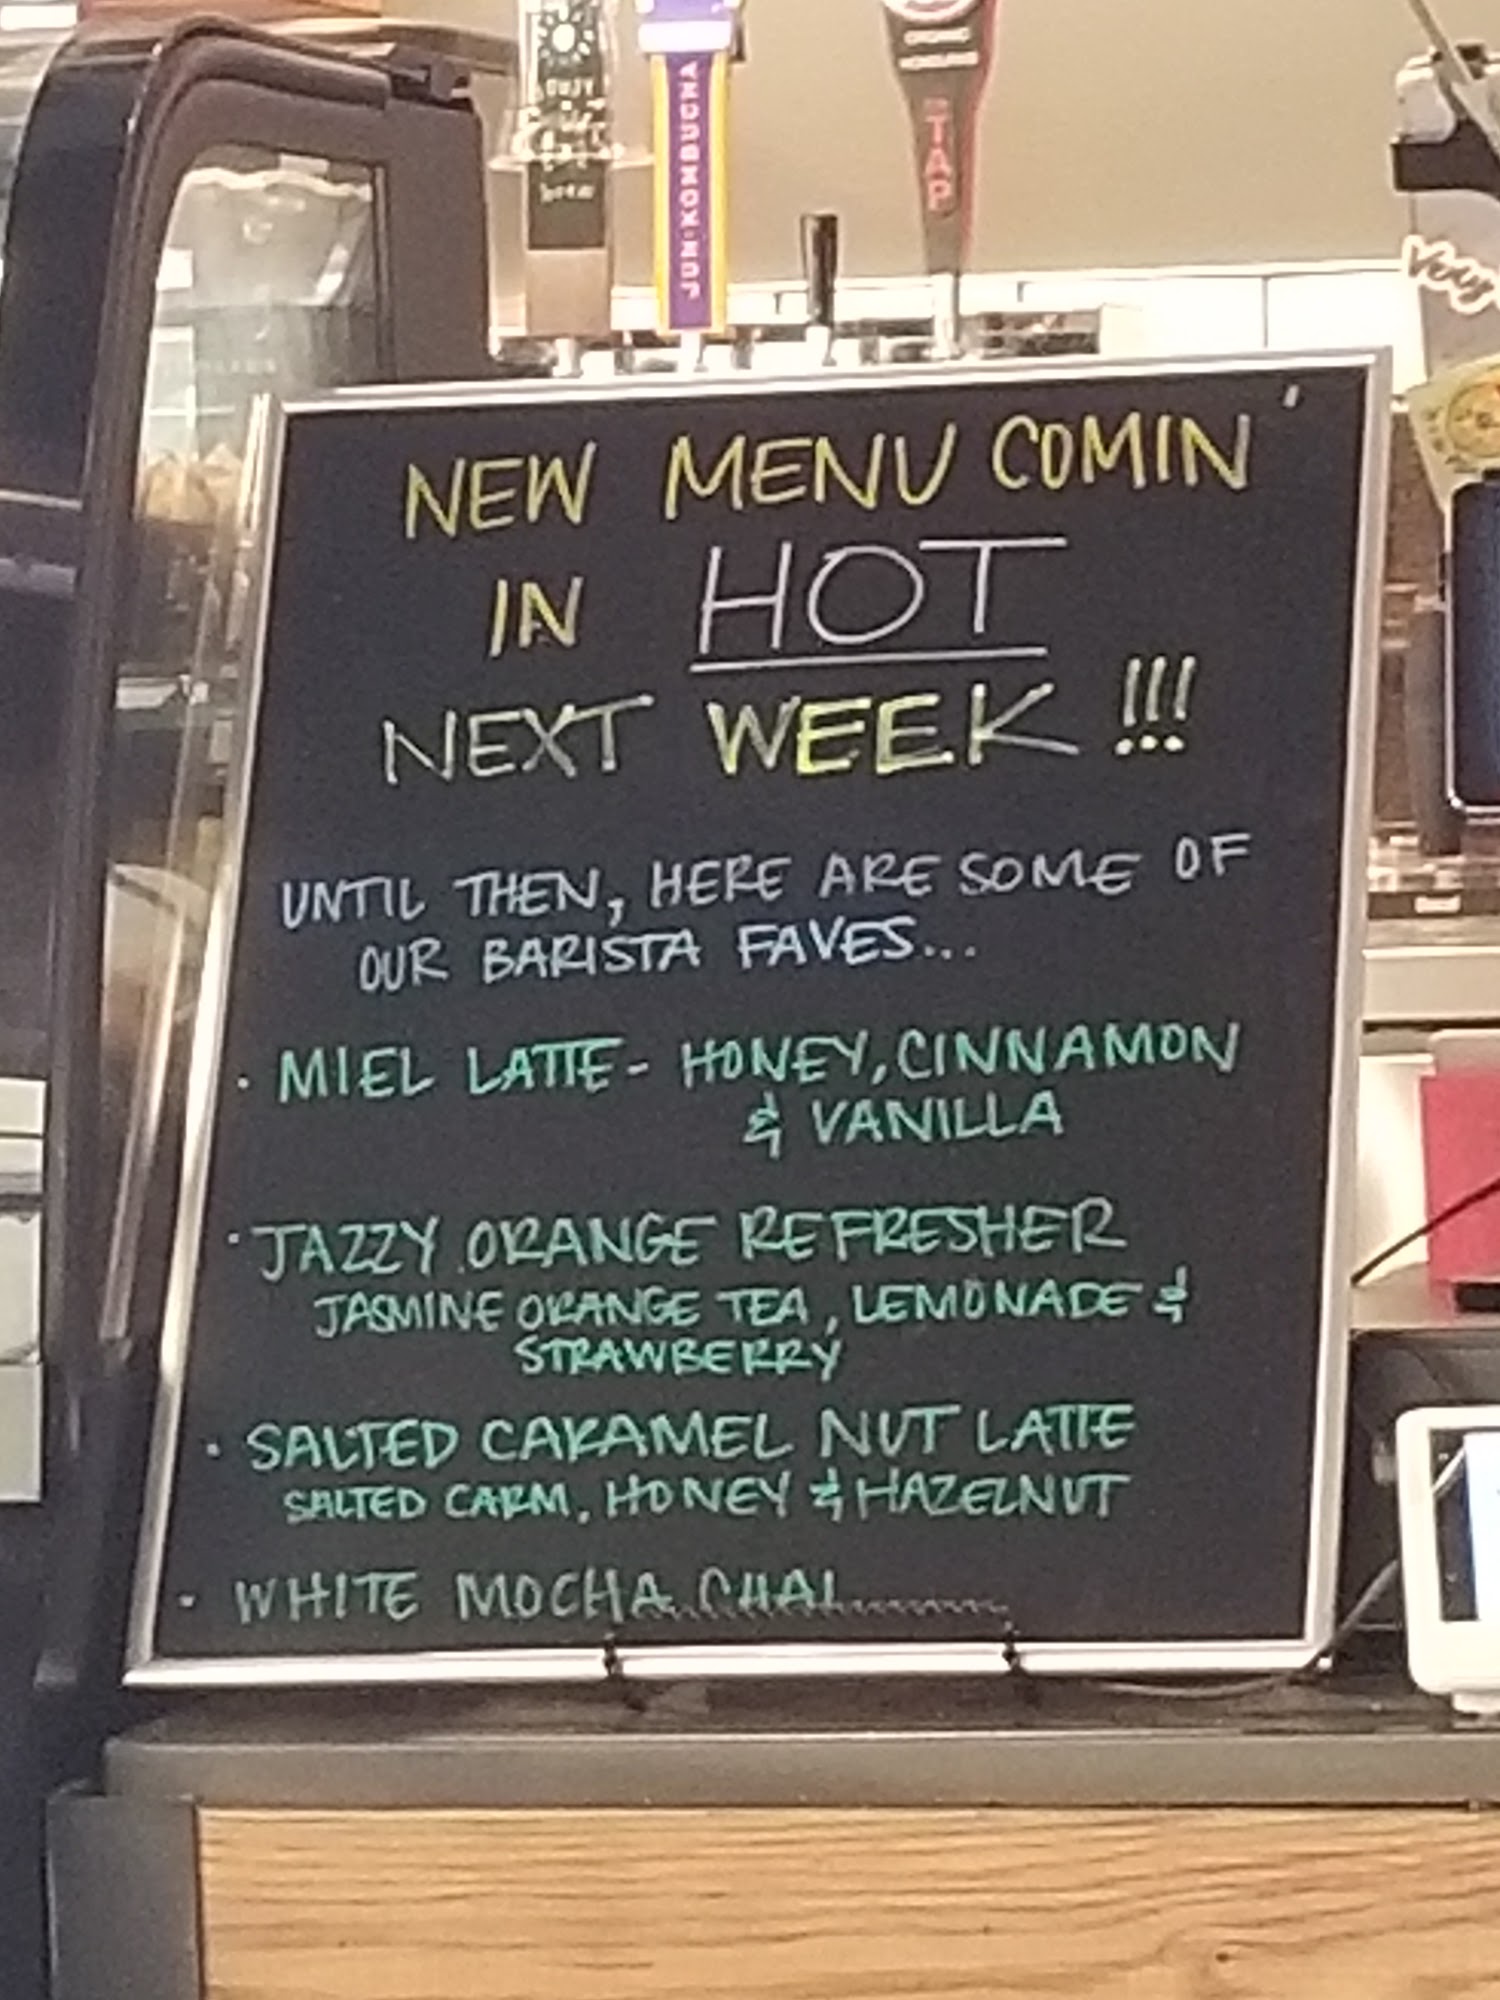 JUN-KOMBUCHA
ORGANIC
TAP
NEW MENU COMIN'
IN HOT
NEXT WEEK!!!
UNTIL THEN, HERE ARE SOME OF
OUR BARISTA FAVES...
· MIEL LATTE - HONEY, CINNAMON
& VANILLA
· JAZZY ORANGE REFRESHER
JASMINE ORANGE TEA, LEMONADE &
STRAWBERRY
· SALTED CARAMEL NUT LATTE
SALTED CARM, HONEY & HAZELNUT
- WHITE MOCHA CHAI